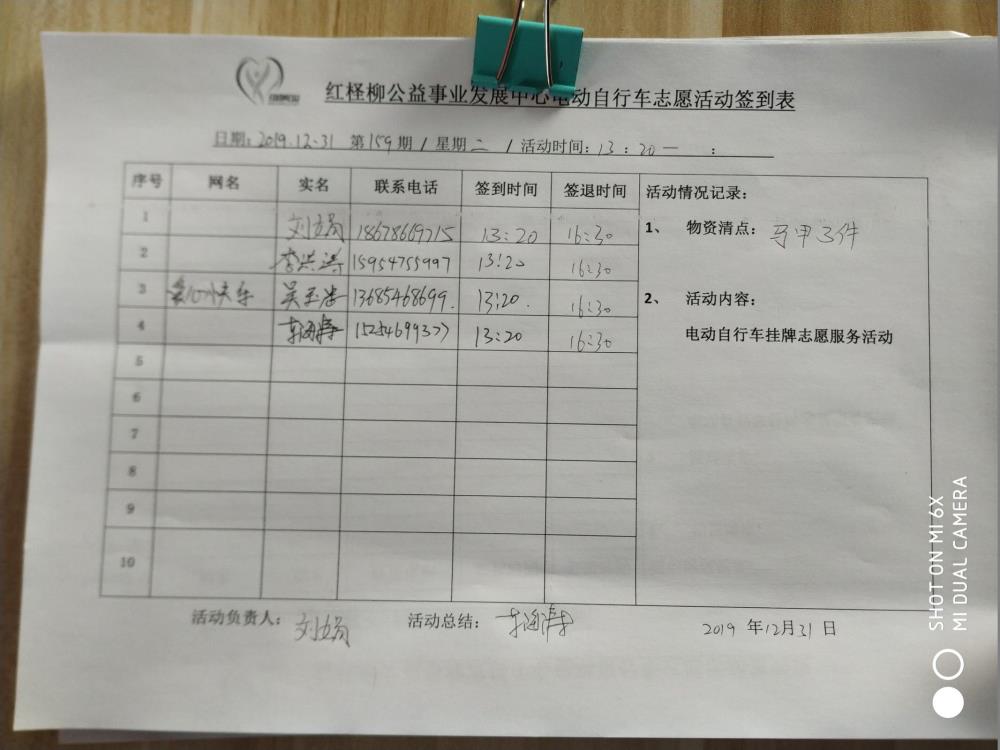 红柽柳公益事业发展中心电动自行车志愿活动签到表
日期：2019.12.31 第159期 / 星期二 / 活动时间：13：20— ：
序号 网名 实名 联系电话 签到时间 签退时间 活动情况记录：
1 刘娟 18678669715 13:20 16:30
1、 物资清点：马甲3件
2 李洪涛 15954755997 13:20 16:30
3 快乐 13685468699. 13:20. 16:30
2、 活动内容：
4 15254699377 13:20 16:30
电动自行车挂牌志愿服务活动
5
6
7
8
9
10
活动负责人：刘娟 活动总结：
2019 年12月31日
SHOT ON MI 6X
MI DUAL CAMERA